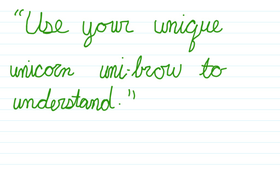 "Use your unique
unicorn uni-brow to
understand."